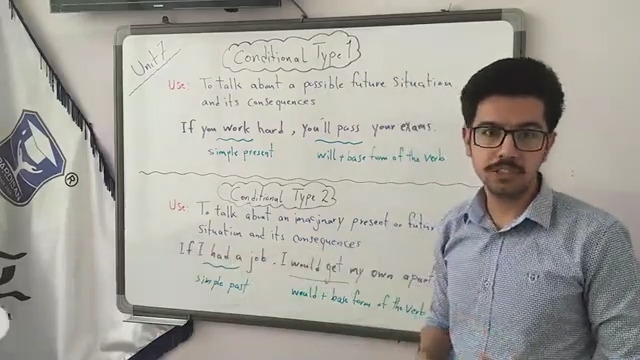 Unit 7
Conditional Type 1
Use: To talk about a possible future situation
and its consequences
If you work hard, you'll pass your exams.
simple present will + base form of the verb
Conditional Type 2
Use: To talk about an imaginary present or futur
situation and its consequences
If I had a job. I would get my own apart
simple past would + base form of the verb
PARDISAN
®